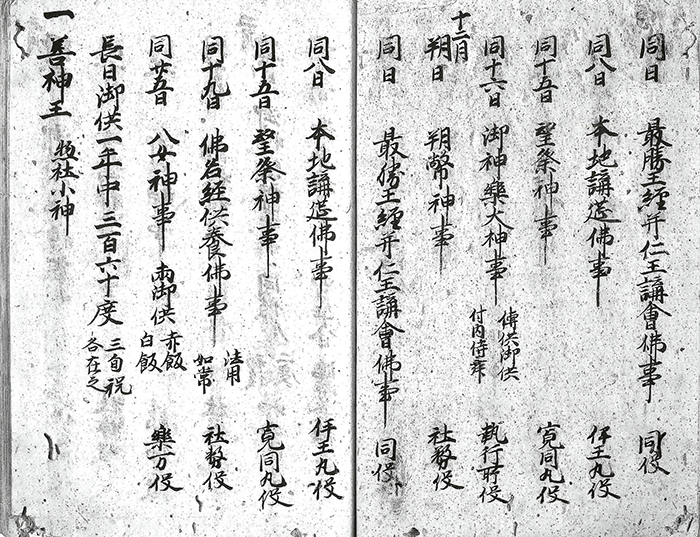 同日 最勝王經并仁王講會佛事 同役
同八日 本地講莚佛事 伊王丸役
同十五日 望祭神事 寛同丸役
同十六日 御神樂大神事 傳供御供 付内侍舞 執行所役
十二月
朔日 朔幣神事 社務役
同日 最勝王經并仁王講會佛事 同役
同八日 本地講莚佛事 伊王丸役
同十五日 望祭神事 寛同丸役
同十九日 佛名經供養佛事 法用 如常 社務役
同廿五日 八女神事 御供 赤飯 白飯 樂万役
長日御供一年中三百六十度 三旬祝 各在之
一 善神王 惣社小神